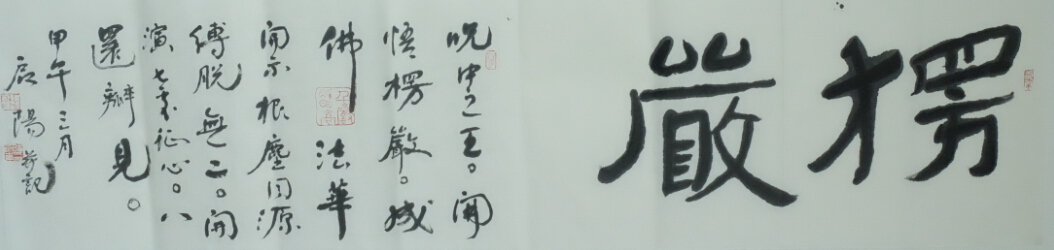 楞嚴
呪中之王。開
悟楞嚴。成
佛法華
開示根塵同源
縛脫無二。開
演七處征心。八
還辨見。
甲午三月
陽記